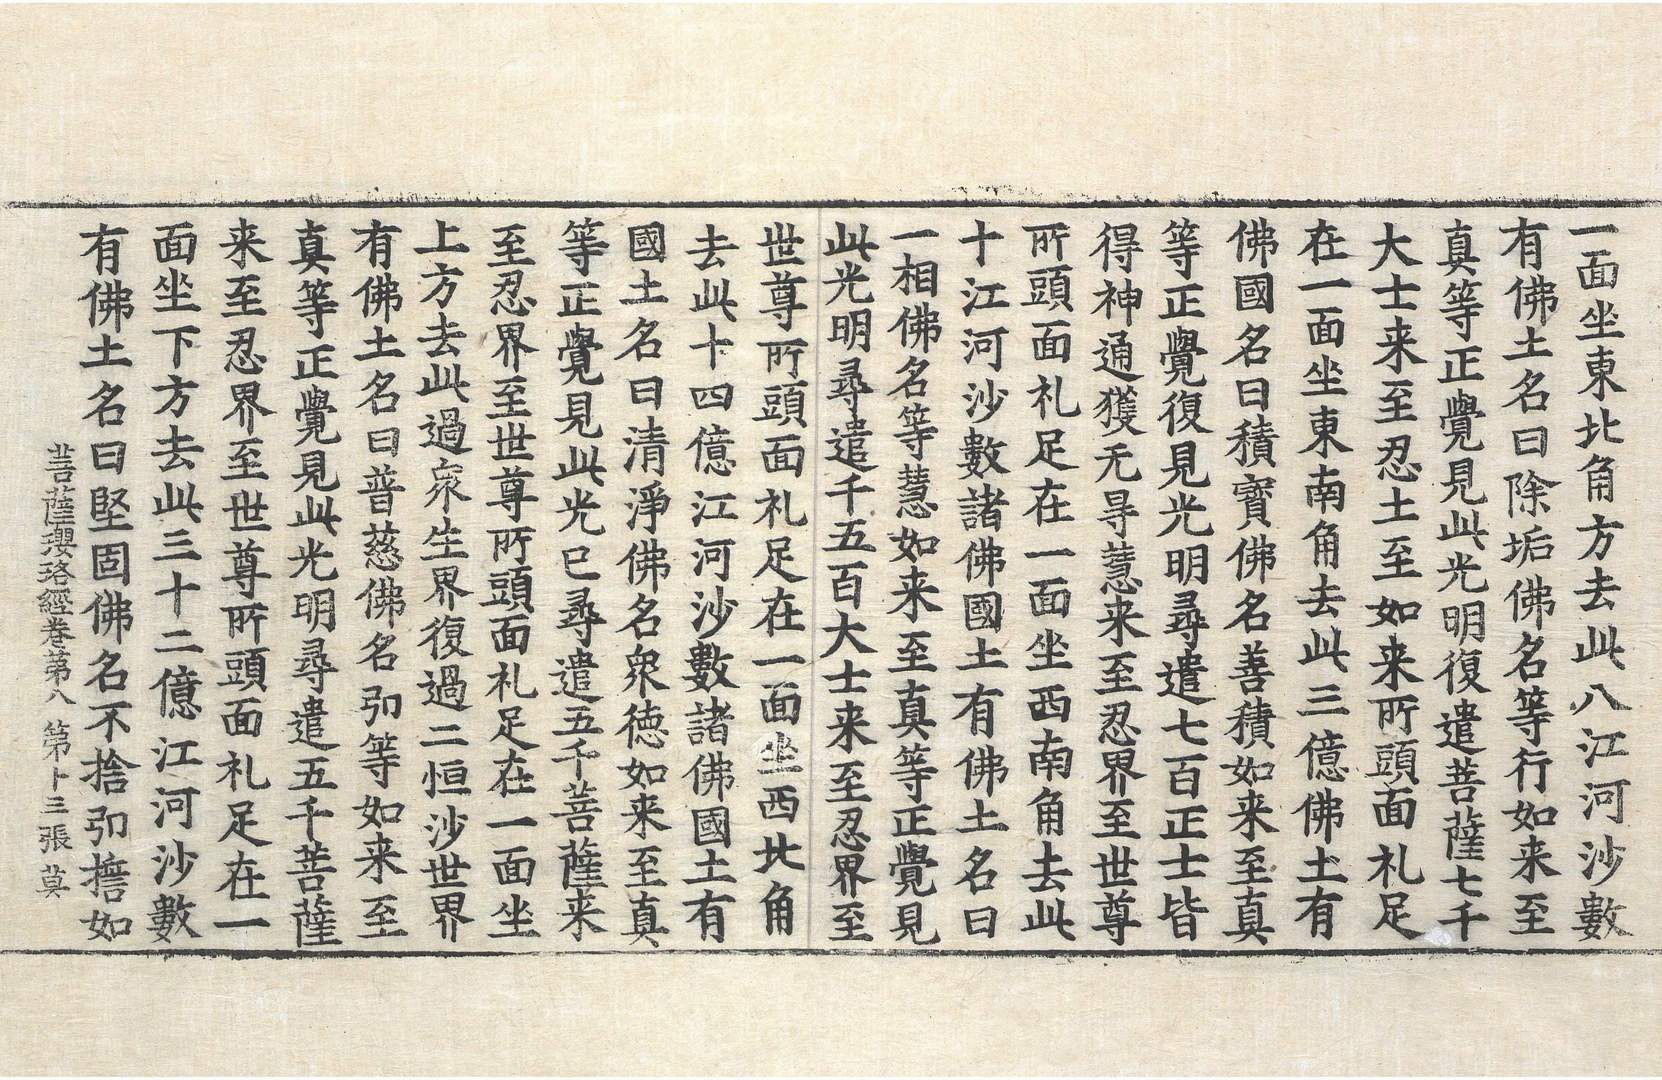 一面坐東北角方去此八江河沙數
有佛土名曰除垢佛名等行如来至
真等正覺見此光明復遣菩薩七千
大士来至忍土至如来所頭面礼足
在一面坐東南角去此三億佛土有
佛國名曰積寶佛名善積如来至真
等正覺復見光明尋遣七百正士皆
得神通獲无㝵慧来至忍界至世尊
所頭面礼足在一面坐西南角去此
十江河沙數諸佛國土有佛土名曰
一相佛名等慧如来至真等正覺見
此光明尋遣千五百大士来至忍界至
世尊所頭面礼足在一面坐西北角
去此十四億江河沙數諸佛國土有
國土名曰清淨佛名衆徳如来至真
等正覺見此光已尋遣五千菩薩来
至忍界至世尊所頭面礼足在一面坐
上方去此過衆生界復過二恒沙世界
有佛土名曰普慈佛名𢎞等如来至
真等正覺見此光明尋遣五千菩薩
来至忍界至世尊所頭面礼足在一
面坐下方去此三十二億江河沙數
有佛土名曰堅固佛名不捨𢎞擔如
菩薩瓔珞經卷第八 第十三張 莫